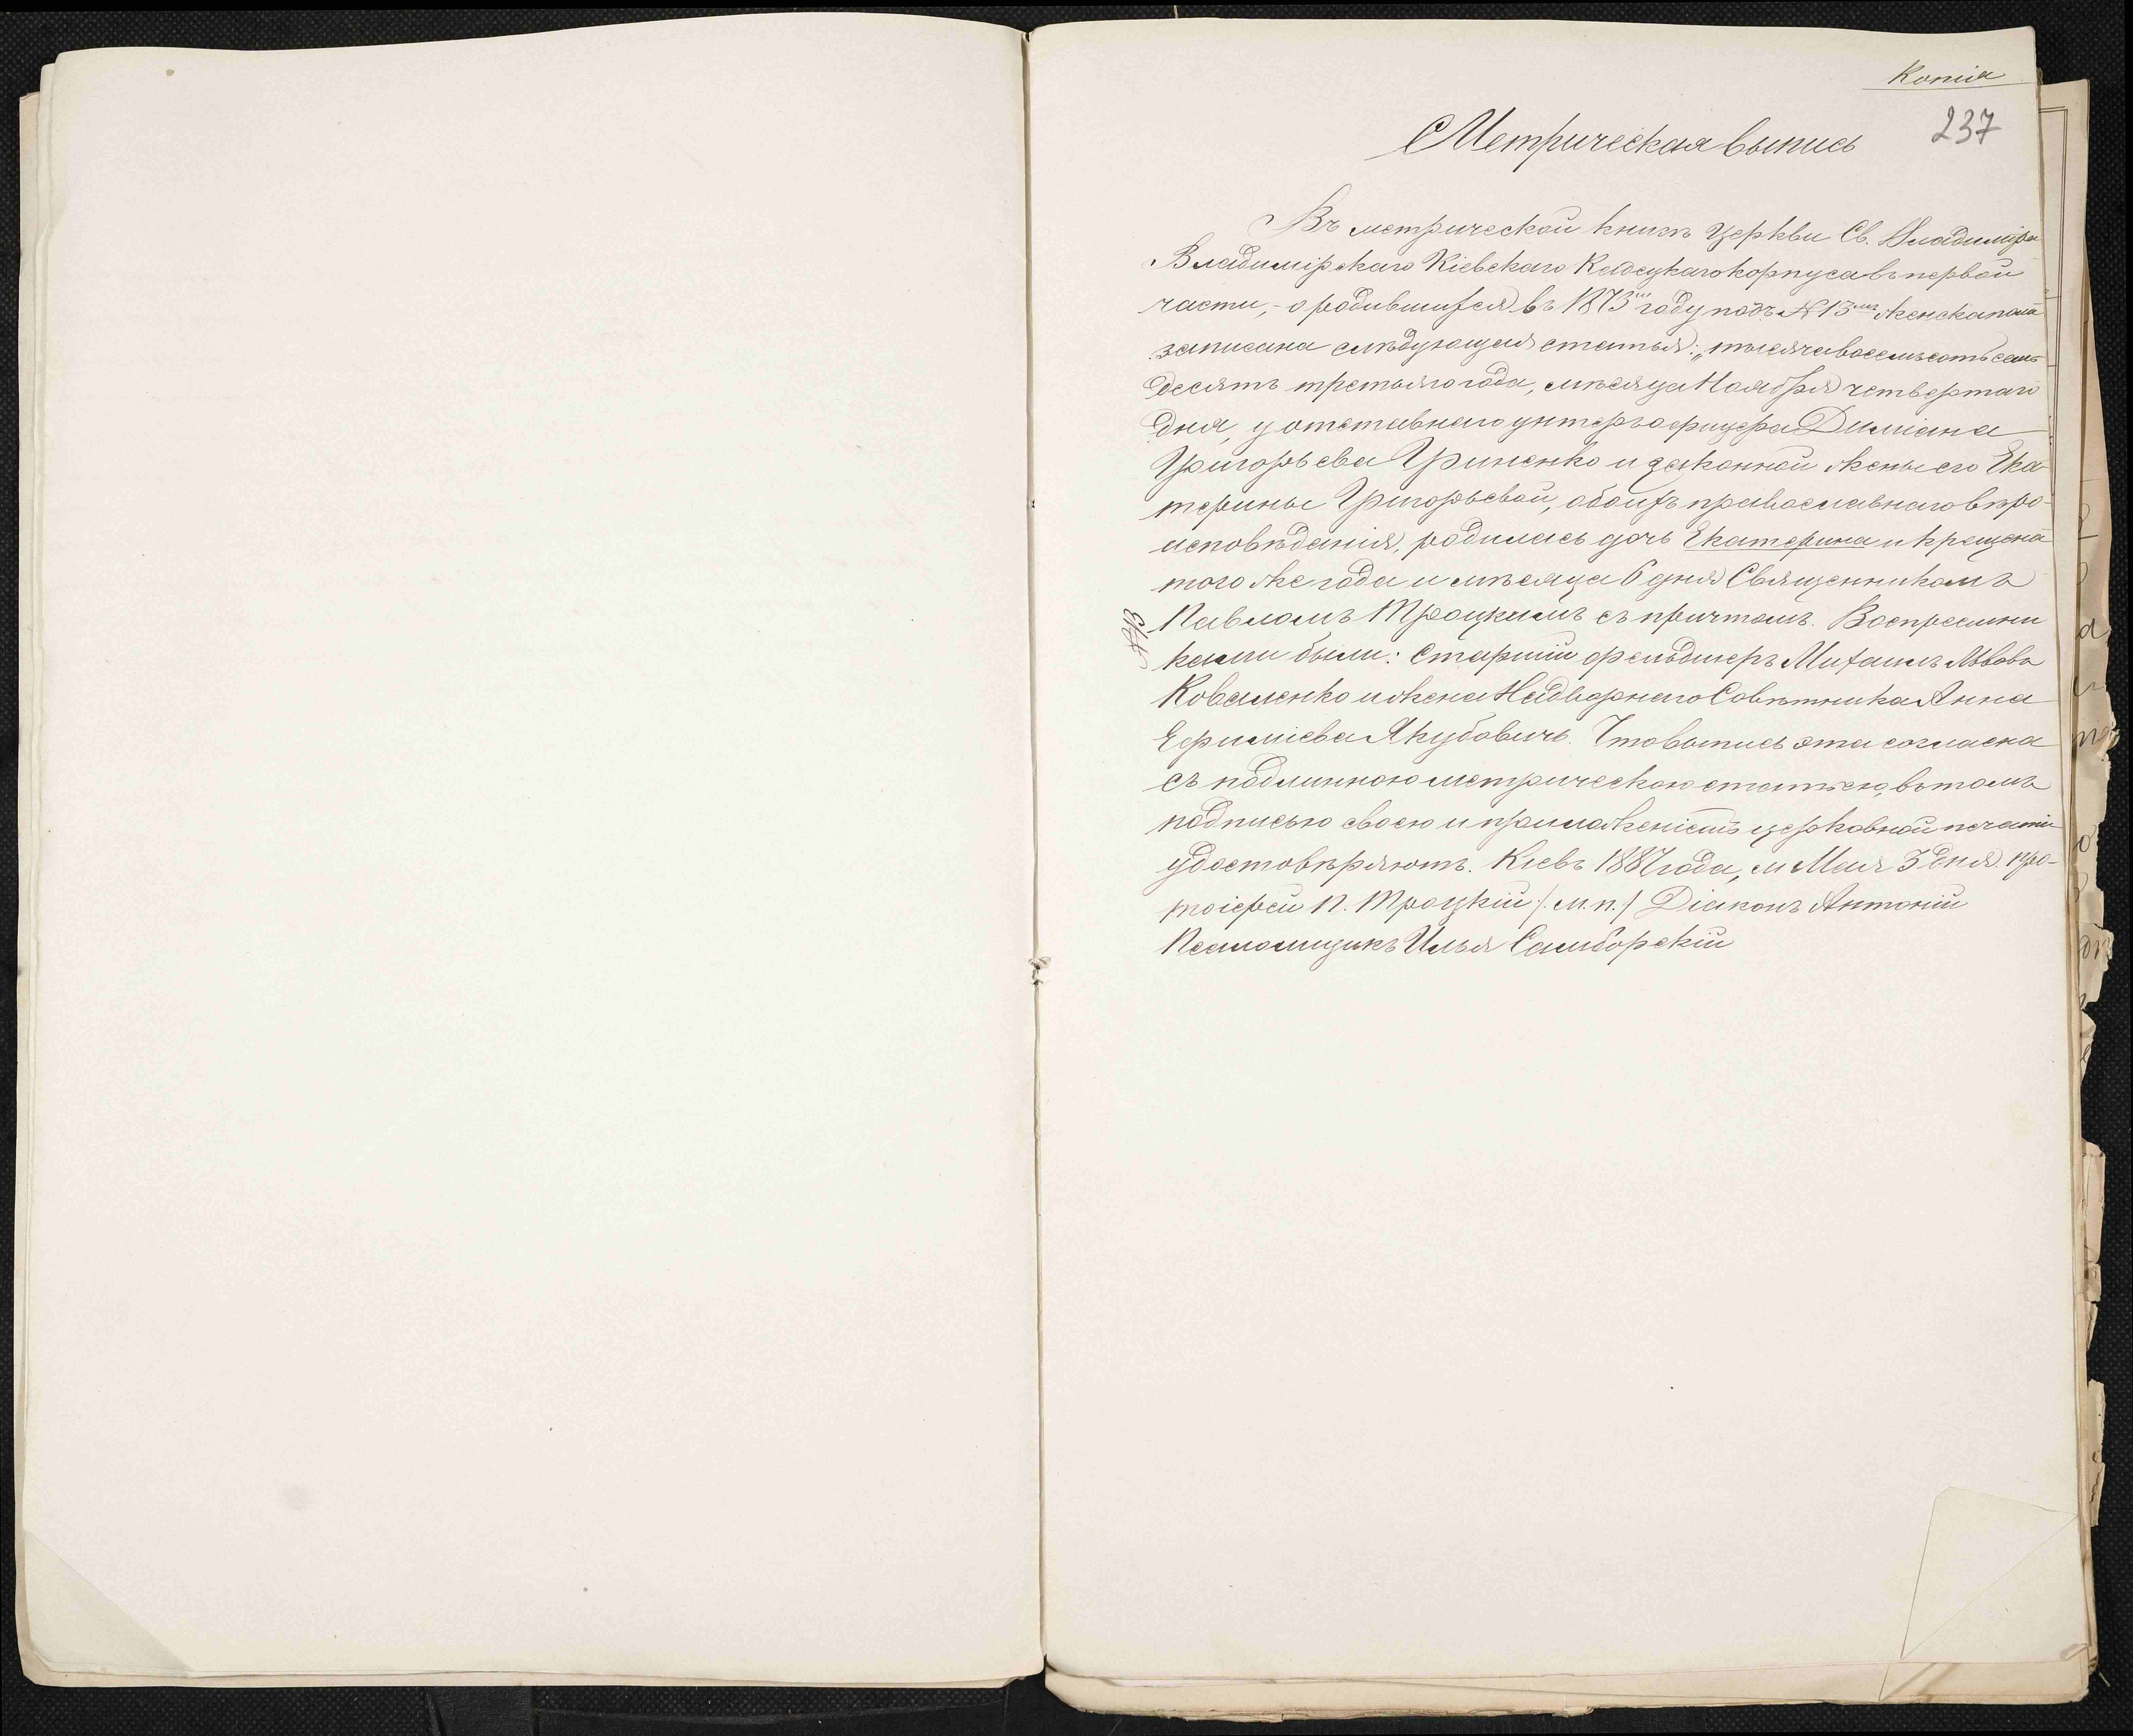 Копія
237
Метрическая выпись
Въ метрической книгѣ Церкви Св. Владиміра
Владимірскаго Кіевскаго Кадецкаго корпуса въ первой
части, - о родившихся въ 1873 году подъ № 13 женска пола
записана слѣдующая статья: „тысяча восемьсотъ семь
десятъ третьяго года, мѣсяца Ноября четвертаго
дня, у отставнаго унтеръ офицера Диміана
Григорьева Гриненко и законной жены его Ека-
терины Григорьевой, обоихъ православнаго вѣро-
исповѣданія, родилась дочь Екатерина и крещена
того же года и мѣсяца 6 дня Священникомъ
Павломъ Троцкимъ съ причтомъ. Воспреемни
ками были: Старшій фельдшеръ Михаилъ Львовъ
Коваленко и жена Надворнаго Совѣтника Анна
Ефиміева Якубовичъ. Что выпись эта согласна
съ подлинною метрическою статьею, въ томъ
подписью своею и приложеніемъ церковной печати
удостовѣряютъ. Кіевъ 1887 года, м Мая 3 дня. про-
тоіерей П. Троцкій /м.п./ Діаконъ Антоній
Псаломщикъ Илья Самборскій